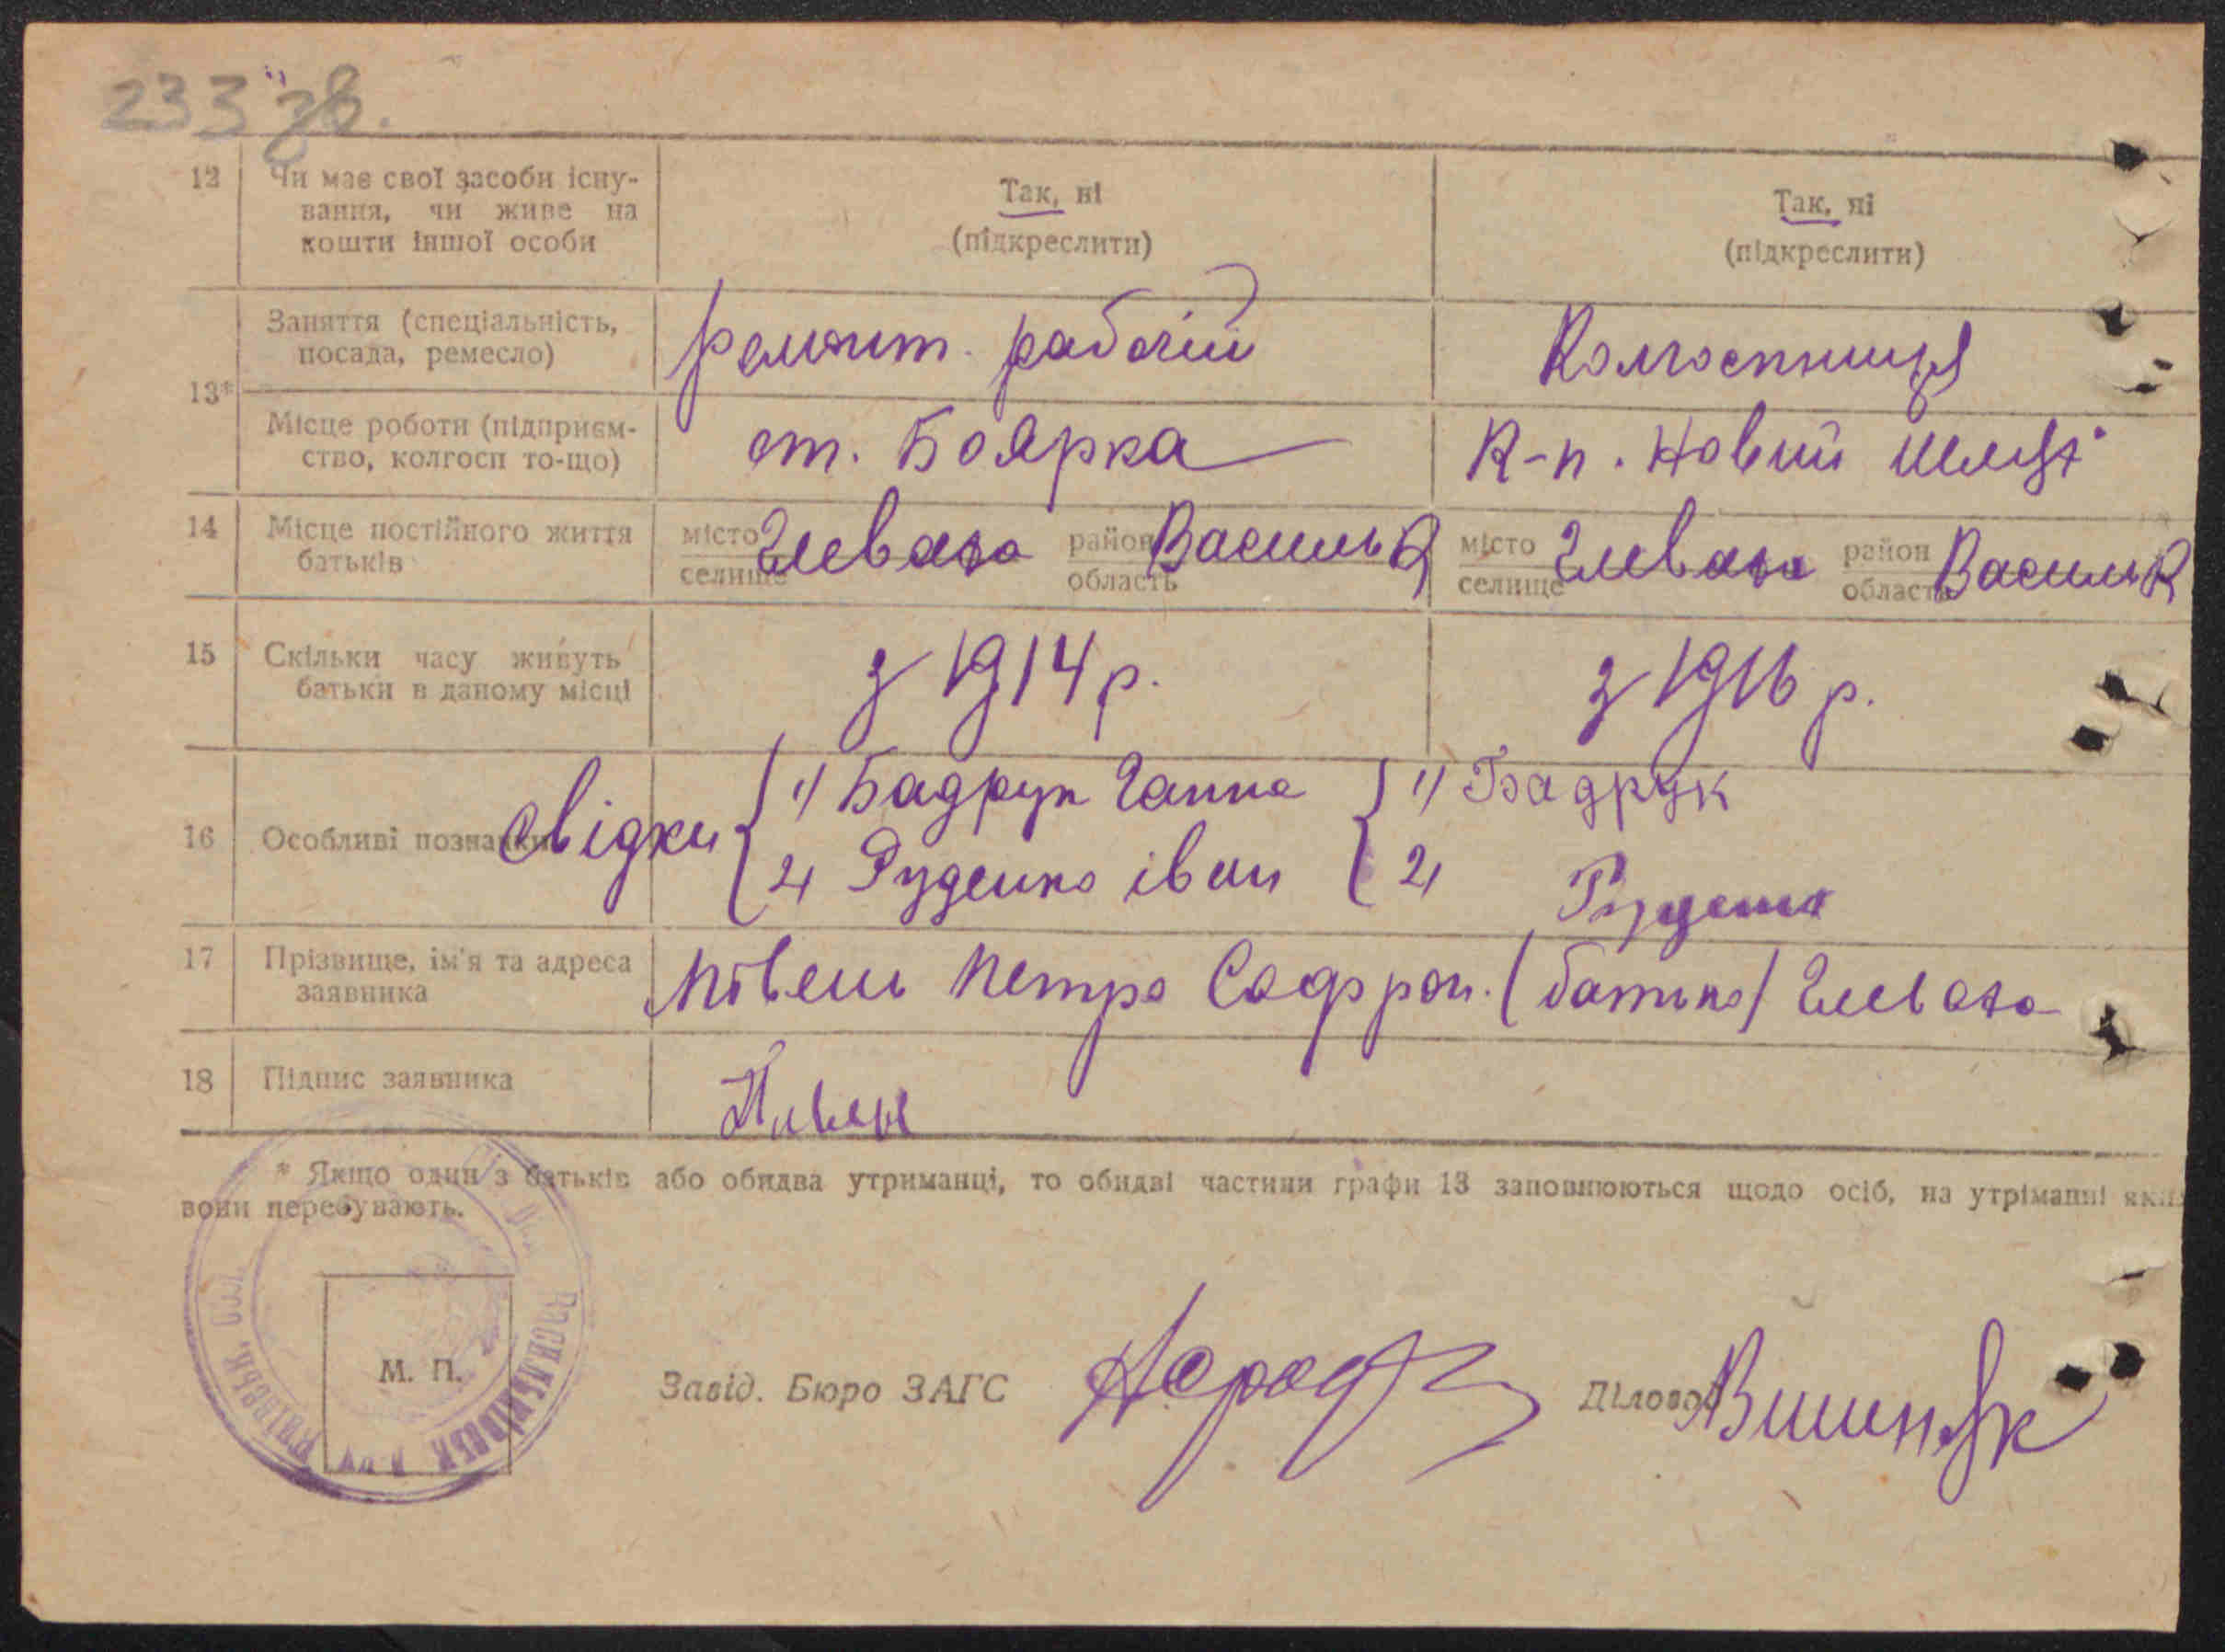 233 зв.
12 Чи має свої засоби існу-
вання, чи живе на
кошти іншої особи
Так, ні
(підкреслити)
Так, ні
(підкреслити)
13*
Заняття (спеціальність,
посада, ремесло)
ремонт. рабочій
Колгоспниця
Місце роботи (підприєм-
ство, колгосп то-що)
ст. Боярка
К-п. Новий Шлях
14 Місце постійного життя
батьків
місто
селище
Глеваха
район
область
Василья
місто
селище
Глеваха
район
область
Васильк
15 Скільки часу живуть
батьки в даному місці
з 1914 р.
з 1916 р.
16 Особливі познаки
Свідки
1) Бадрук Ганна
2) Руденко іван
1) Бадрук
2) Руденко
17 Прізвище, ім'я та адреса
заявника
Півень Петро Софрон. (батько) Глеваха
18 Підпис заявника
Пивен
* Якщо один з батьків або обидва утриманці, то обидві частини графи 13 заповнюються щодо осіб, на утріманні яких
вони перебувають.
М. П.
Завід. Бюро ЗАГС
Діловод